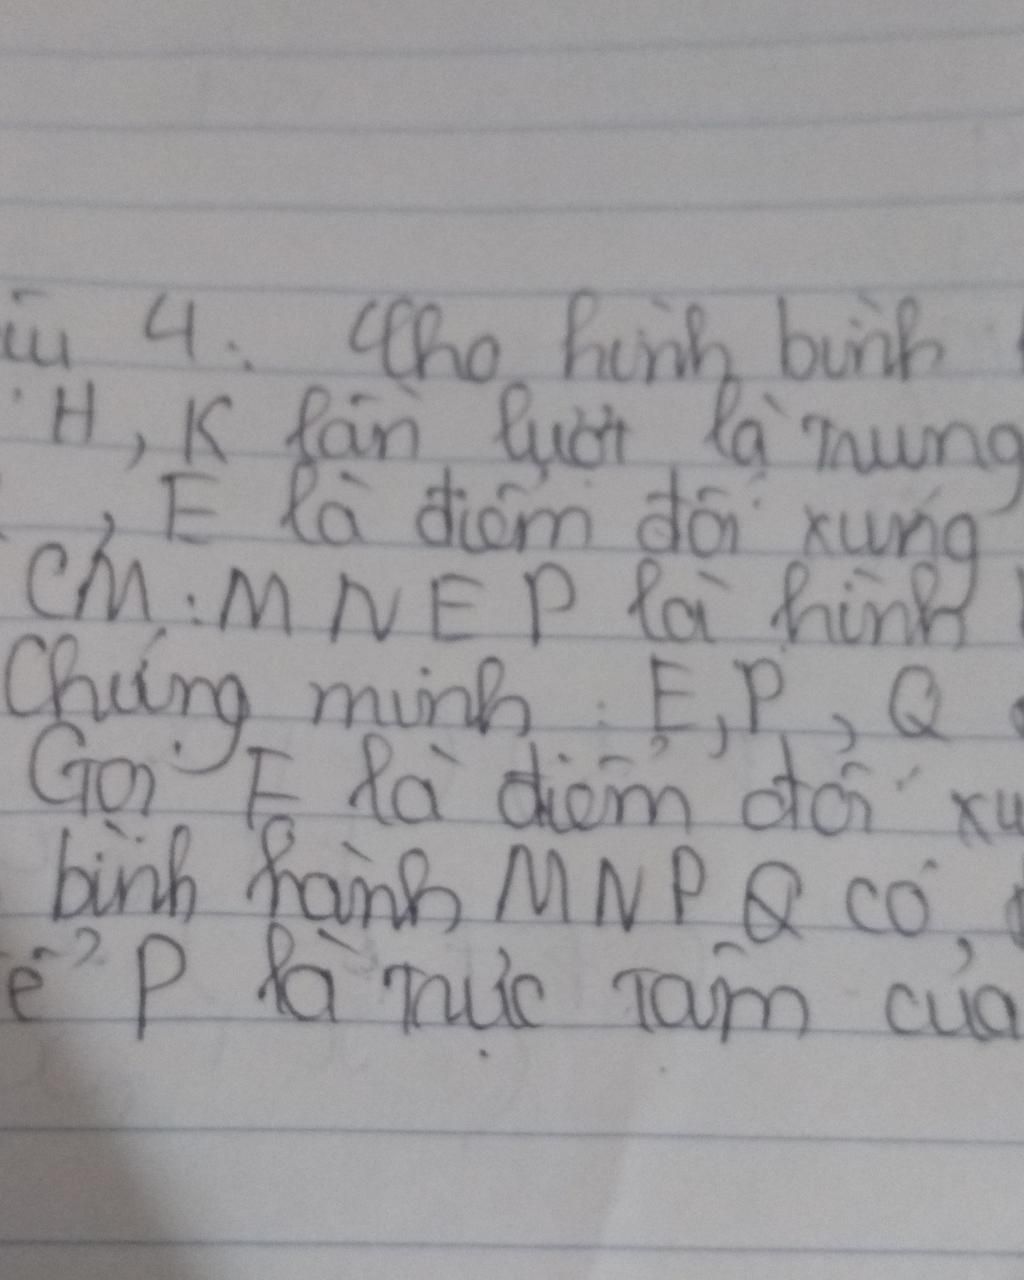 4: Cho hình bình
H, K lần lượt là trung
, E là điểm đối xứng
CM: MNEP là hình
Chứng minh: E, P, Q
Gọi F là điểm đối
bình hành MNPQ có,
P là trực tâm của